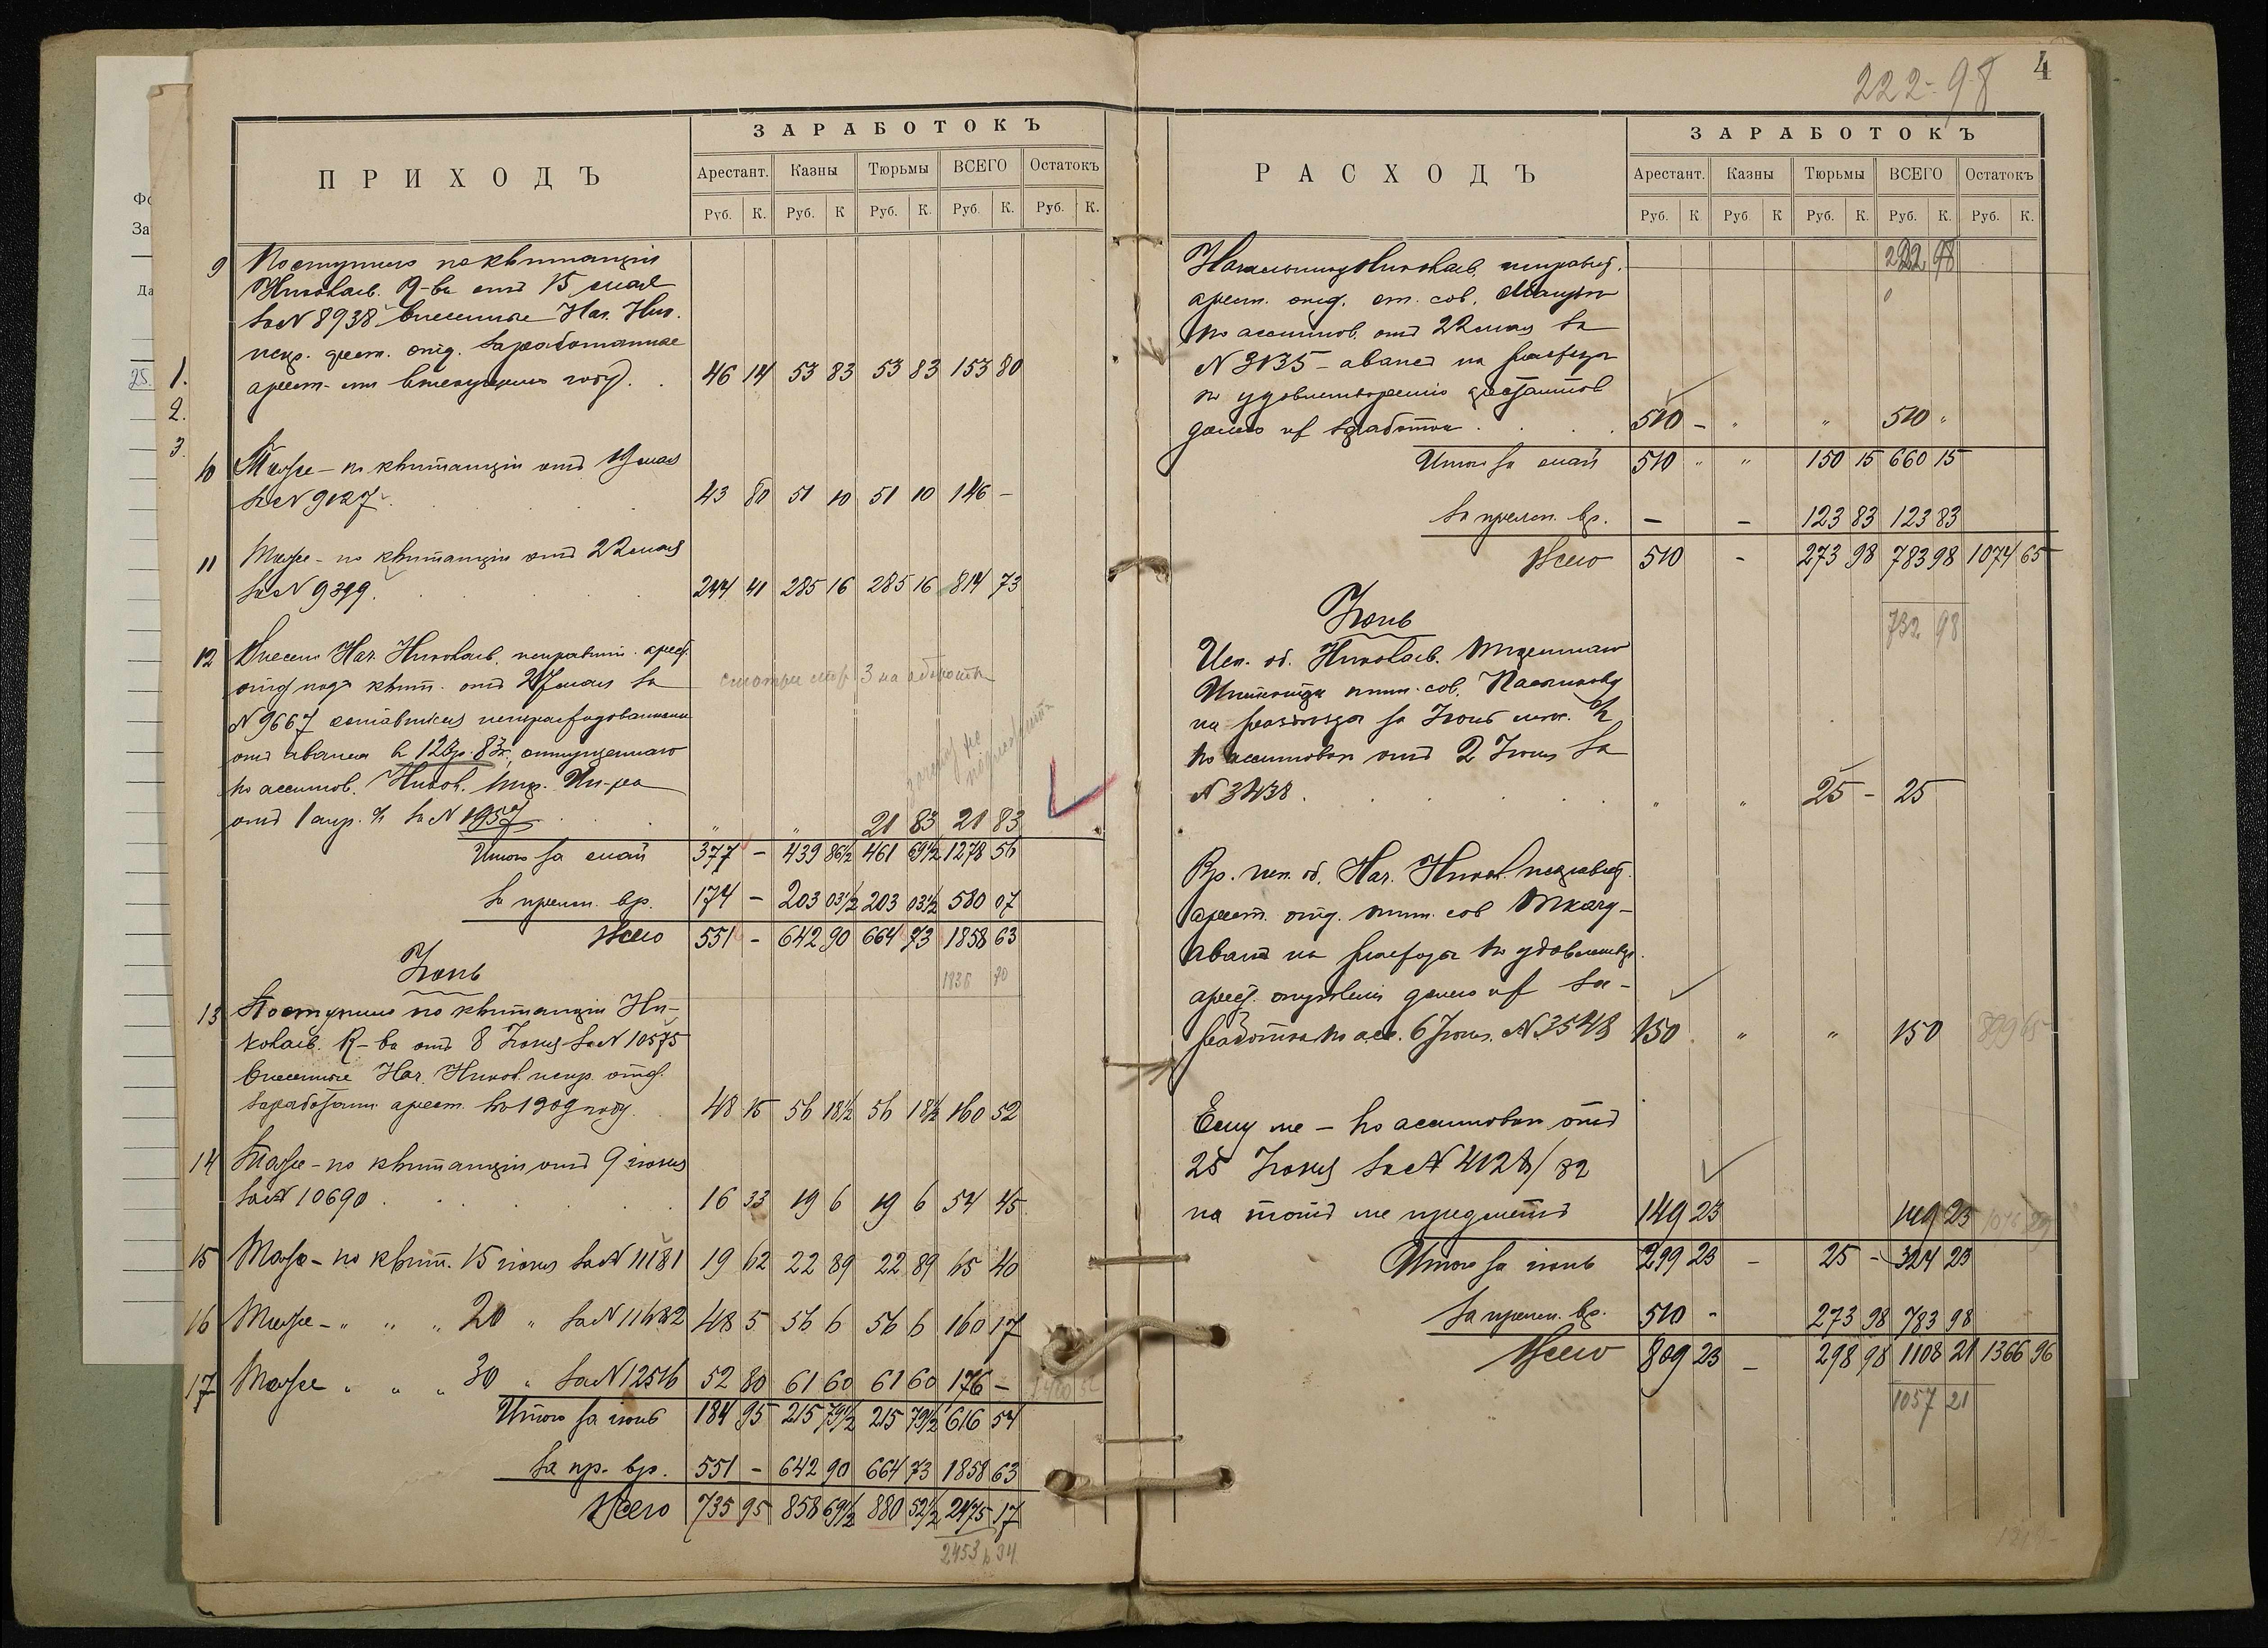 4
222-98
ПРИХОДЪ
ЗАРАБОТОКЪ
Арестант. Казны Тюрьмы ВСЕГО Остатокъ
Руб. К. Руб. К Руб. К. Руб. К. Руб. К.
9 Поступило по квитанціи
Николаев. К-ва отъ 15 мая
за № 8938 внесенные Нач. Ник.
испр. арест. отд. заработанные
арест-ми въ текущемъ году. 46 14 53 83 53 83 153 80
10 Тоже - по квитанціи отъ 19 мая
за № 9127. 43 80 51 10 51 10 146 -
11 Тоже - по квитанціи отъ 22 мая
за № 9399. 244 41 285 16 285 16 814 73
12 Внесен. Нач. Николаев. исправит. арест.
отд. подъ квит. отъ 27 мая за
№ 9667 оставшіеся неизрасходованными
отъ аванса въ 123р. 83к., отпущеннаго
по ассигнов. Никол. Тюр. Ин-ра
отъ 1 апр. за № 1957 " " 21 83 21 83
смотри стр. 3 на обороте
Итого за май 377 - 439 86½ 461 69½ 1278 56
За прежн. вр. 174 - 203 03½ 203 03½ 580 07
Всего 551 - 642 90 664 73 1858 63
Іюнь
13 Поступило по квитанціи Ни-
колаев. К-ва отъ 8 Іюня за № 10575
внесенные Нач. Никол. испр. отд.
заработан. арест. въ 1909 году. 48 15 56 18½ 56 18½ 160 52
14 Тоже - по квитанціи отъ 9 іюня
за № 10690 16 33 19 6 19 6 54 45
15 Тоже - по квит. 15 іюня за № 11181 19 62 22 89 22 89 65 40
16 Тоже - " " " 20 " за № 11682 48 5 56 6 56 6 160 17
17 Тоже " " " 30 " за № 12516 52 80 61 60 61 60 176 -
Итого за іюнь 184 95 215 79½ 215 79½ 616 54
За пр. вр. 551 - 642 90 664 73 1858 63
Всего 735 95 858 69½ 880 52½ 2475 17
2453 р 34
РАСХОДЪ
ЗАРАБОТОКЪ
Арестант. Казны Тюрьмы ВСЕГО Остатокъ
Руб. К Руб К Руб. К. Руб. К. Руб. К.
222 98
Начальнику Николаев. исправит.
арест. отд. ст. сов.
по ассигнов. отъ 22 мая за
№ 3135 - авансъ на расходы
по удовлетворенію арестантовъ
долею изъ заработка 510 - " " 510 "
Итого за май 510 " " 150 15 660 15
За прежн. вр. - - 123 83 123 83
Всего 510 - 273 98 783 98 1074 65
732 98
Іюнь
Исп. об. Николаев. Тюремнаго
Инспектора тит. сов.
на расходы за Іюнь
по ассигновк. отъ 2 Іюня за
№ 3438 " " 25 - 25
Вр. исп. об. Нач. Никол. исправит.
арест. отд. тит. сов Ткачу -
авансъ на расходы по удовлетвор.
арест. отдѣленія долею изъ за-
работка по асс. 6 Іюня № 3548 150 " " 150 899 65
Ему же - по ассигновк. отъ
25 Іюня за № 4128/82
на тотъ же предметъ 149 23 149 23
Итого за іюнь 299 23 - 25 - 324 23
За прежн. вр. 510 - 273 98 783 98
Всего 809 23 - 298 98 1108 21 1366 96
1057 21